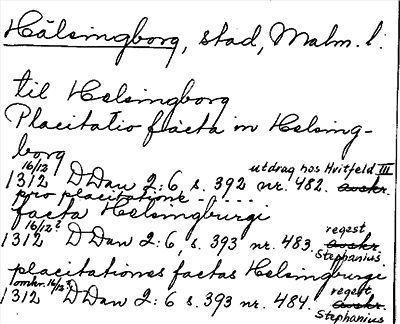 Hälsingborg, stad, Malm. l:
til Helsingborg
Placitatio facta in Helsing-
borg
16/12 utdrag hos Hvitfeld III
1312 DDan 2:6, s. 392 nr. 482. avskr.
pro placitatione - . . . .
facta Helsingburgi
16/12? regest
1312 DDan 2:6, s. 393 nr. 483. avskr.
Stephanius
placitationes factas Helsingburgi
omkr. 16/12? regest,
1312 DDan 2:6 s. 393 nr. 484. avskr.
Stephanius